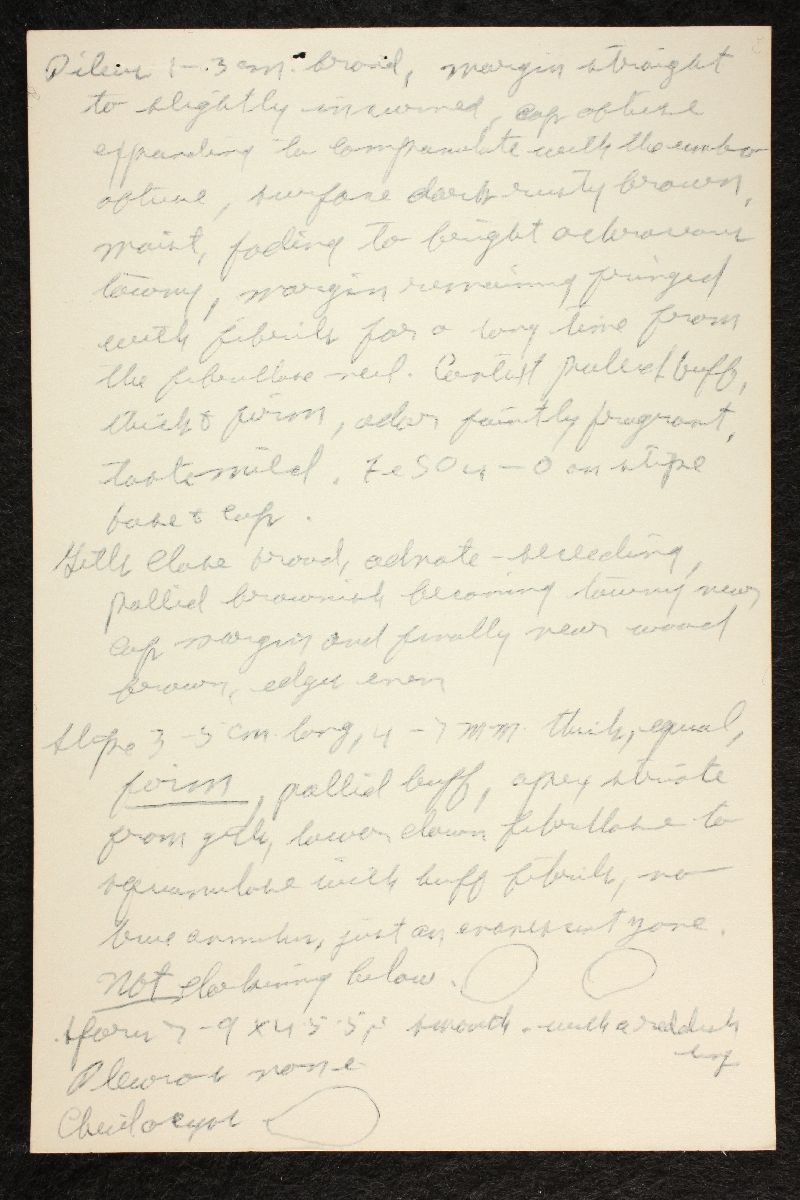 Pileus 1-3 cm broad, margin straight
to slightly incurved, cap obtuse
expanding to campanulate with the umbo
obtuse, surface dark rusty brown,
moist, fading to bright ochraceous
tawny, margin remaining fringed
with fibrils for a long time from
the fibrillose veil. Context pallid buff,
thick & firm, odor faintly fragrant,
taste mild. FeSO4 - O on stipe
base & cap.
Gills close broad, adnate-seceding,
pallid brownish becoming tawny near
cap margin and finally near wood
brown, edges even
Stipe 3-5 cm long, 4-7 mm thick, equal,
firm, pallid buff, apex striate
from gills, lower down fibrillose to
squamulose with buff fibrils, no
true annulus, just an evanescent zone.
Not darkening below.
Spores 7-9 x 4.5-5.5 µ smooth - with a reddish
ting
Pleuros none
Cheilocyst